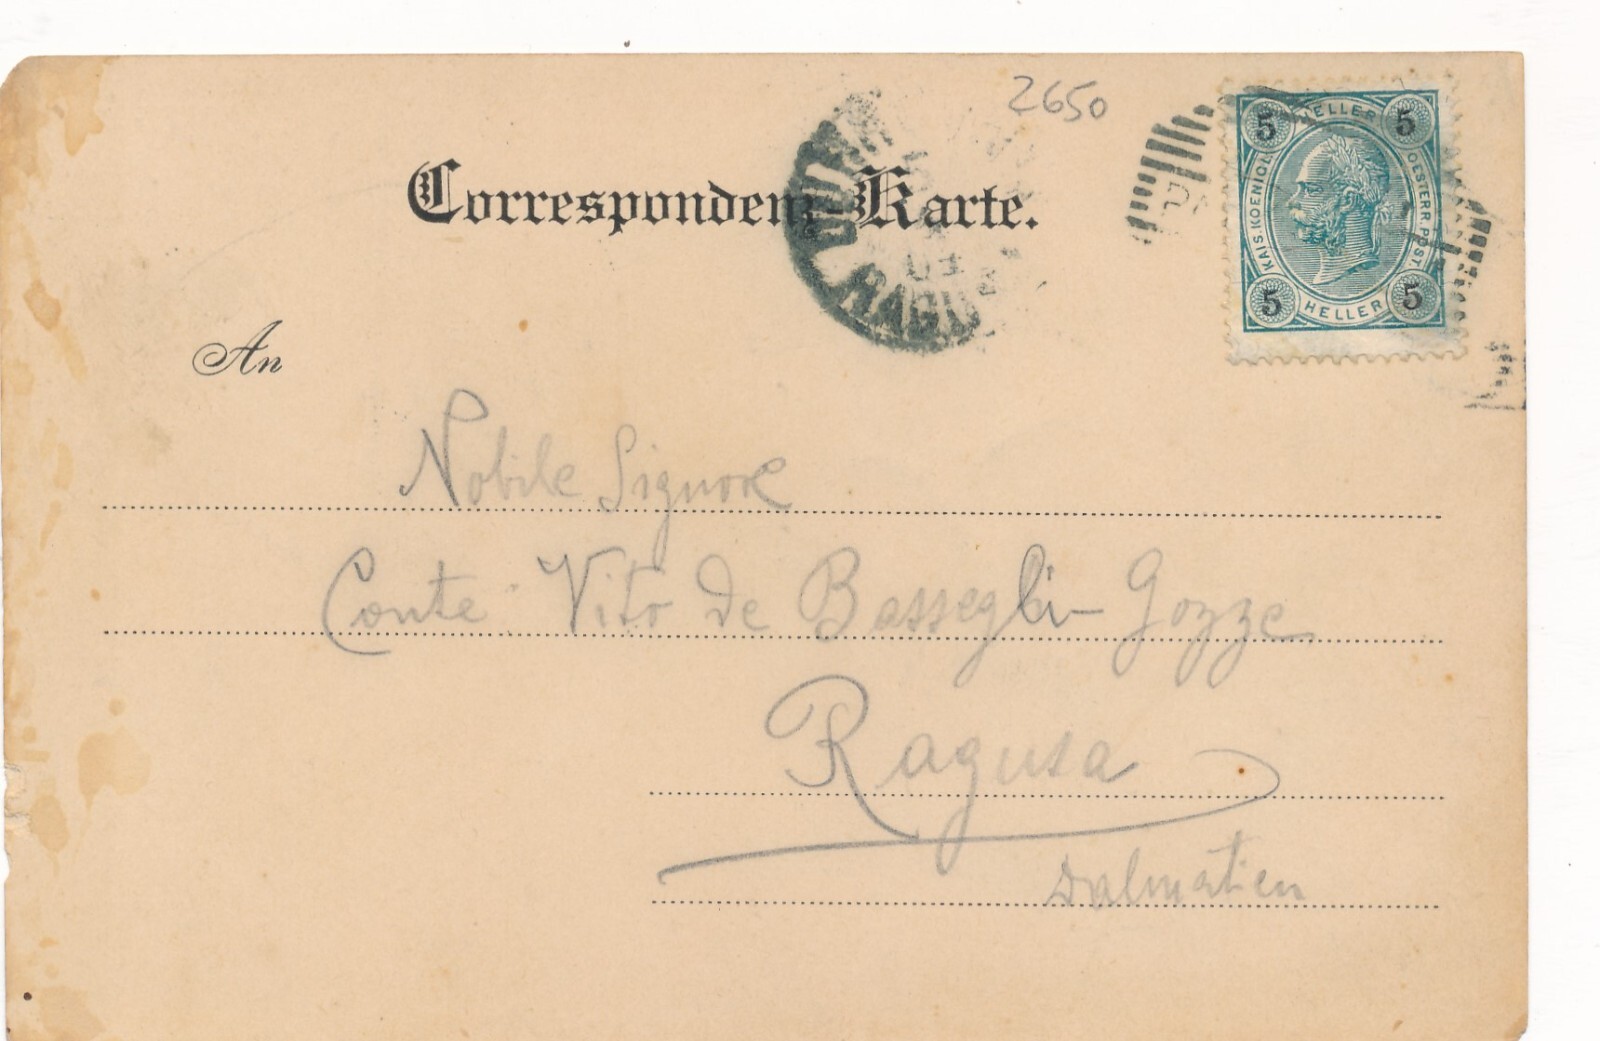 2650
Correspondenz-Karte.
5 HELLER 5
KAIS. KOENIGL. OESTERR. POST.
5 HELLER 5
03
RAGUSA
An
Nobile Signore
Conte Vito de Bassegli-Gozze
Ragusa
Dalmatien